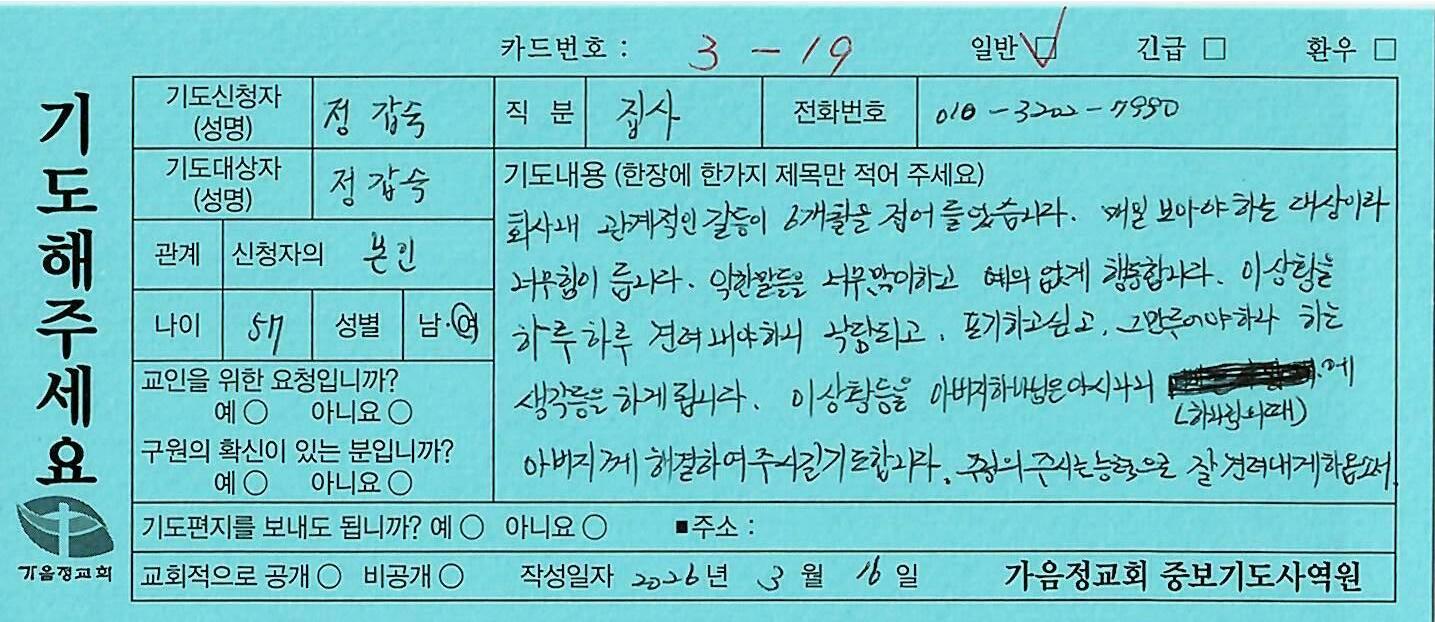 카드번호 : 3 - 19 일반 ☑ 긴급 □ 환우 □
기도해주세요
기도신청자 (성명) 정갑숙 직 분 집사 전화번호 010-3202-7990
기도대상자 (성명) 정갑숙
관계 신청자의 본인
나이 57 성별 남·여
교인을 위한 요청입니까?
예 ○ 아니요 ○
구원의 확신이 있는 분입니까?
예 ○ 아니요 ○
기도내용 (한장에 한가지 제목만 적어 주세요)
회사내 관계적인 갈등이 6개월을 접어 들었습니다. 매일 보아야 하는 대상이라
너무힘이 듭니다. 악한말들을 너무많이하고 예의 없게 행동합니다. 이상황을
하루하루 견뎌내야하니 낙담되고, 포기하고싶고, 그만두어야하나 하는
생각등을 하게 됩니다. 이상황등을 아버지하나님은아시나니 에
(하나님의때)
아버지께 해결하여주시길기도합니다. 주님의 주시는능력으로 잘견뎌내게하옵소서.
기도편지를 보내도 됩니까? 예 ○ 아니요 ○ ■주소 :
교회적으로 공개 ○ 비공개 ○ 작성일자 2026년 3월 16일 가음정교회 중보기도사역원
가음정교회